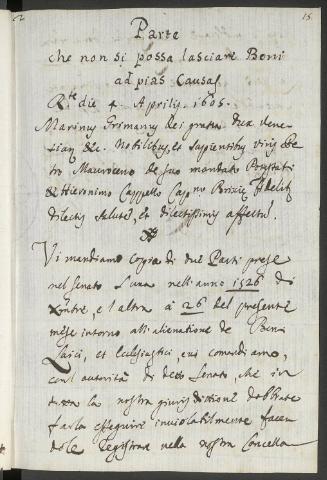 2 15
Parte
che non si possa lasciare Beni
ad pias Causas
R.te die 4. Aprilis. 1605.
Marinus Grimanus Dei gratia Dux Vene-
tiarum &c. Nobilibus, et Sapientibus Viris Pe-
tro Mauroceno de suo mandato Potestati
& Hieronimo Cappello Cap.no Brixiæ fidelib.
dilectis salutem, et dilectionis affectum.
Vi mandiamo copia di due Parti prese
nel Senato l'una nell'anno 1526 di
Xmbre, e l'altra à 26 del presente
mese intorno all'alienatione de Beni
Laici, et Ecclesiastici, cui comandiamo,
con l'autorità di detto Senato, che in
tutta la nostra giurisditione dobbiate
farla esseguire inviolabilmente facen
dole registrar nella nostra Cancella